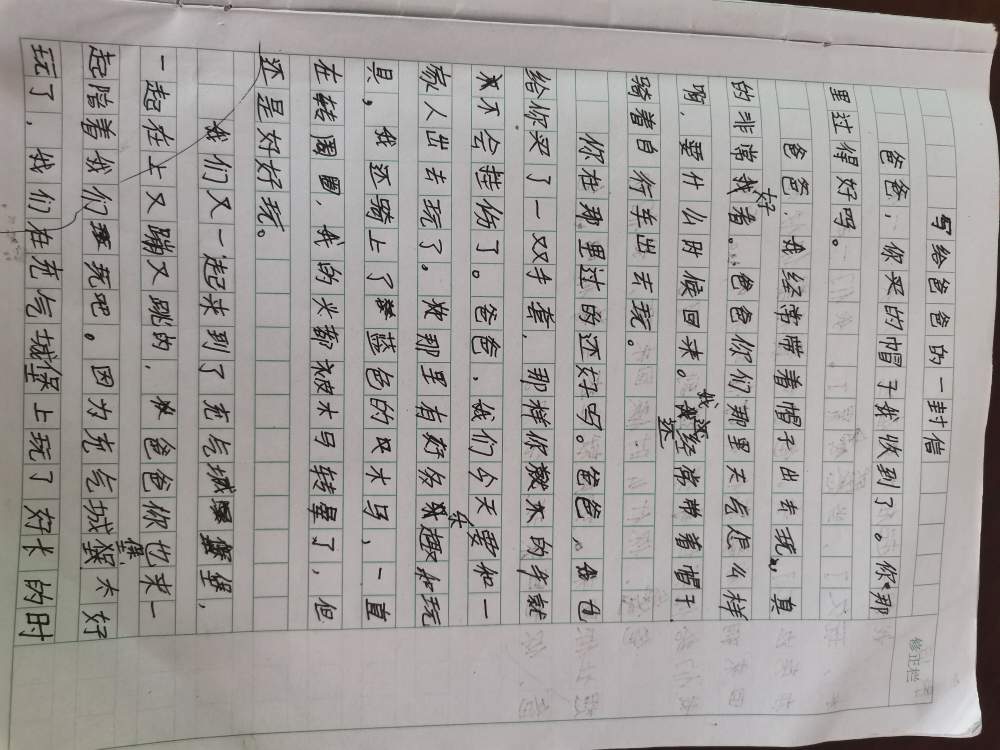 写给爸爸的一封信
爸爸，你买的帽子我收到了。你那
里过得好吗。
爸爸，我经常带着帽子出去玩，真
的非常好看。爸爸你们那里天气怎么样
啊，要什么时候回来。我还经常带着帽子
骑着自行车出去玩。
你在那里过的还好吗。爸爸，我也
给你买了一双手套，那样你数木的手就
不会挫伤了。爸爸，我们今天要和一
家人出去玩了。那里有好多乐趣和玩
具，我还骑上了蓝色的只木马，一直
在转圈圈，我的头都被木马转晕了，但
还是好好玩。
我们又一起来到了充气城堡，
一起在上又蹦又跳的，爸爸你也来一
起陪着我们玩吧。因为充气城堡太好
玩了，我们在充气城堡上玩了好长的时
修正栏